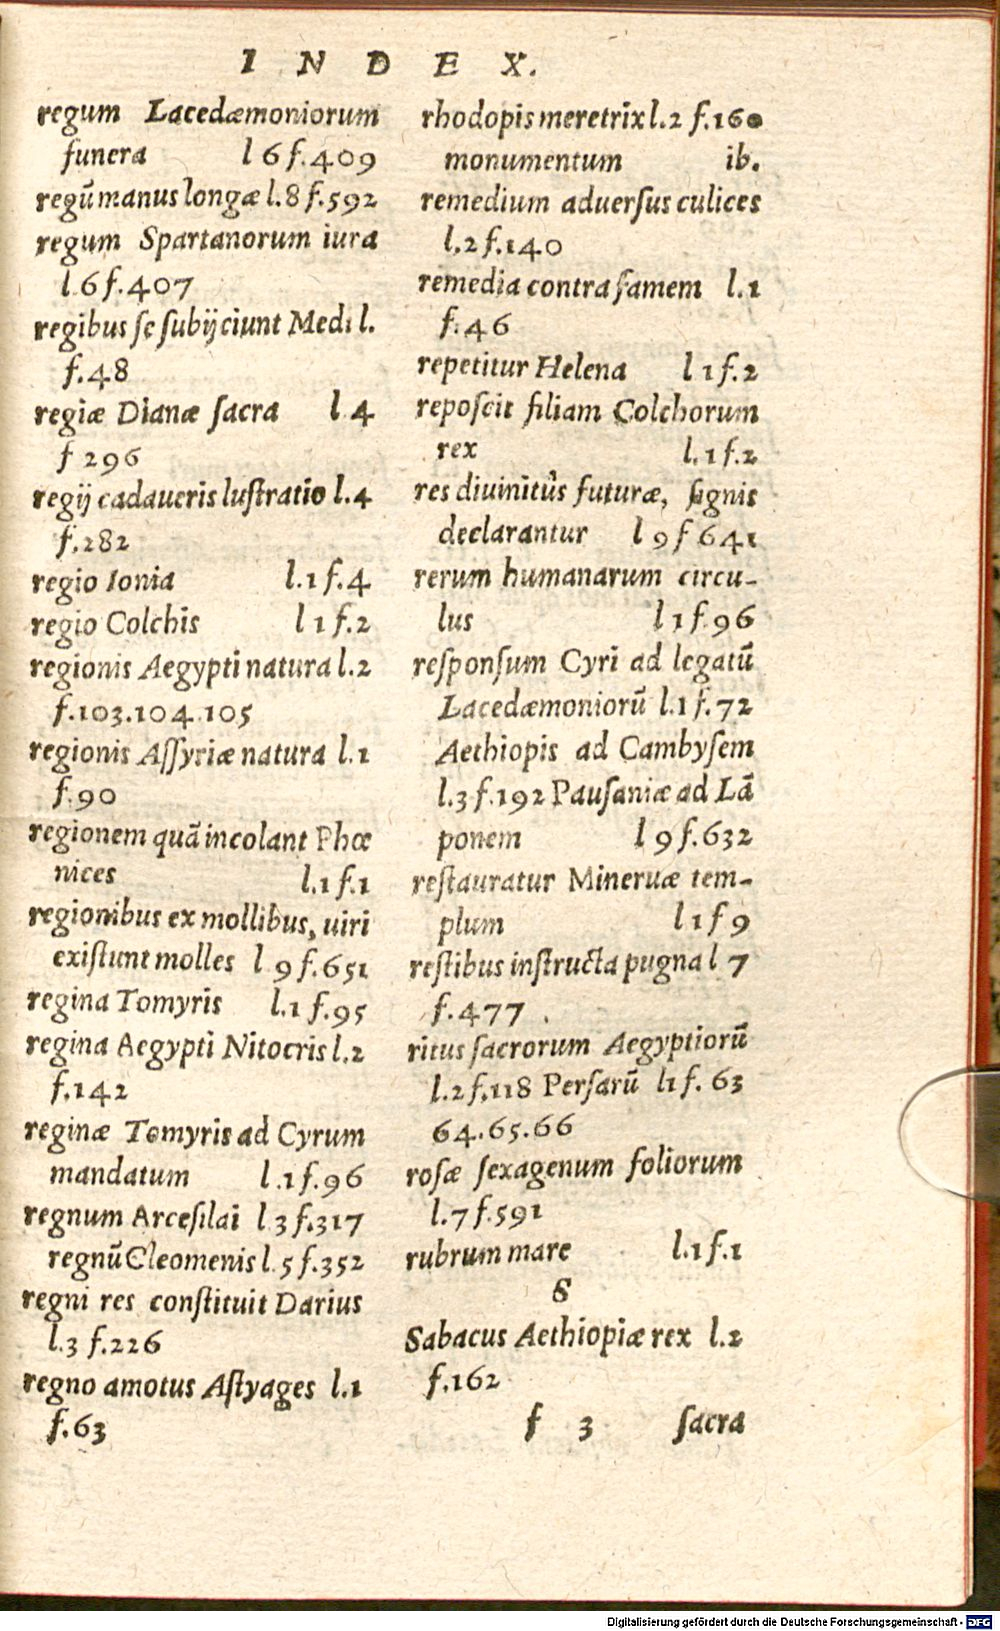 INDEX.
regum Lacedæmoniorum
funera l 6 f.409
regū manus longæ l.8 f.592
regum Spartanorum iura
l.6 f.407
regibus ſe ſubijciunt Medi l.
f.48
regiæ Dianæ ſacra l 4
f 296
regij cadaueris luſtratio l.4
f.282
regio Ionia l.1 f.4
regio Colchis l 1 f.2
regionis Aegypti natura l.2
f.103.104.105
regionis Aſſyriæ natura l.1
f.90
regionem quā incolant Phœ
nices l.1 f.1
regionibus ex mollibus, uiri
exiſtunt molles l 9 f.651
regina Tomyris l.1 f.95
regina Aegypti Nitocris l.2
f.142
reginæ Tomyris ad Cyrum
mandatum l.1 f.96
regnum Arceſilai l 3 f.317
regnū Cleomenis l.5 f.352
regni res conſtituit Darius
l.3 f.226
regno amotus Aſtyages l.1
f.63
rhodopis meretrix l.2 f.160
monumentum ib.
remedium aduerſus culices
l.2 f.140
remedia contra famem l.1
f.46
repetitur Helena l 1 f.2
repoſcit filiam Colchorum
rex l.1 f.2
res diuinitùs futuræ, ſignis
declarantur l 9 f 641
rerum humanarum circu-
lus l 1 f.96
reſponſum Cyri ad legatū
Lacedæmoniorū l.1 f.72
Aethiopis ad Cambyſem
l.3 f.192 Pauſaniæ ad Lā
ponem l 9 f.632
reſtauratur Mineruæ tem-
plum l 1 f 9
reſtibus inſtructa pugna l 7
f.477
ritus ſacrorum Aegyptiorū
l.2 f.118 Perſarū l1 f. 63
64.65.66
roſæ ſexagenum foliorum
l.7 f.591
rubrum mare l.1 f.1
S
Sabacus Aethiopiæ rex l.2
f.162
f 3 ſacra
Digitalisierung gefördert durch die Deutsche Forschungsgemeinschaft - DFG